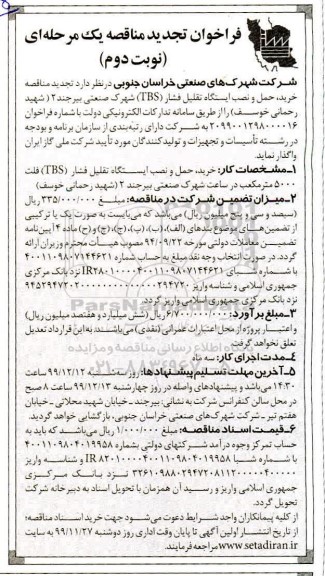 فراخوان تجدید مناقصه یک مرحله‌ای
(نوبت دوم)
شرکت شهرک‌های صنعتی خراسان جنوبی در نظر دارد تجدید مناقصه
خرید، حمل و نصب ایستگاه تقلیل فشار (TBS) شهرک صنعتی بیرجند ۲ (شهید
رحمانی خوسف) را از طریق سامانه تدارکات الکترونیکی دولت با شماره فراخوان
۲۰۹۹۰۰۱۲۹۸۰۰۰۰۱۶ به شرکت دارای رتبه‌بندی از سازمان برنامه و بودجه
در رشته تأسیسات و تجهیزات و تولیدکنندگان مورد تأیید شرکت ملی گاز ایران
واگذار نماید.
۱ـ مشخصات کار: خرید، حمل و نصب ایستگاه تقلیل فشار (TBS) فلت
۵۰۰۰ مترمکعب در ساعت شهرک صنعتی بیرجند ۲ (شهید رحمانی خوسف)
۲ـ میزان تضمین شرکت در مناقصه: مبلغ ۳۳۵/۰۰۰/۰۰۰ ریال
(سیصد و سی و پنج میلیون ریال) می‌باشد که می‌بایست به صورت یک یا ترکیبی
از تضمین‌های موضوع بندهای (الف)، (ب)، (پ)، (ج)، (چ) و (ح) ماده ۴ آیین‌نامه
تضمین معاملات دولتی مورخه ۹۴/۰۹/۲۲ مصوب هیأت محترم وزیران ارائه
گردد. در صورت انتخاب وجه نقد مبلغ به حساب شماره ۴۰۰۱۱۰۹۸۰۷۱۴۴۶۲۱
با شماره شبای نزد بانک مرکزی
جمهوری اسلامی و شناسه واریز
نزد بانک مرکزی جمهوری اسلامی واریز گردد.
۳ـ مبلغ برآورد: ۶/۷۰۰/۰۰۰/۰۰۰ ریال (شش میلیارد و هفتصد میلیون ریال)
و اعتبار پروژه از محل اعتبارات عمرانی (نقدی) می‌باشند به این قرارداد تعدیل
تعلق نخواهد گرفت.
۴ـ مدت اجرای کار: سه ماه
۵ـ آخرین مهلت تسلیم پیشنهادها: روز سه‌شنبه ۹۹/۱۲/۱۲ ساعت
۱۴:۳۰ می‌باشد و پیشنهادهای واصله در روز چهارشنبه ۹۹/۱۲/۱۳ ساعت ۸ صبح
در محل سالن کنفرانس شرکت به نشانی: بیرجند ـ خیابان شهید محلاتی ـ خیابان
هفتم تیر ـ شرکت شهرک‌های صنعتی خراسان جنوبی، بازگشایی خواهد گردید.
۶ـ قیمت اسناد مناقصه: مبلغ ۱/۰۰۰/۰۰۰ ریال می‌باشد که باید به
حساب تمرکز وجوه درآمد شرکتهای دولتی بشماره ۴۰۰۱۱۰۹۸۰۴۰۱۹۹۵۸
با شماره شبا و شناسه واریز
نزد بانک مرکزی
جمهوری اسلامی واریز و رسید آن همزمان با تحویل اسناد به دبیرخانه شرکت
تحویل گردد.
از کلیه پیمانکاران واجد شرایط دعوت می‌شود جهت خرید اسناد مناقصه؛
از تاریخ انتشار اولین آگهی تا پایان وقت اداری روز دوشنبه ۹۹/۱۱/۲۷ به سایت
www.setadiran.ir مراجعه فرمایند.